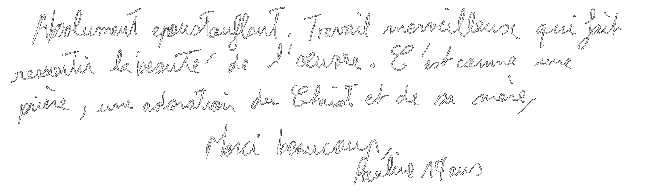 Absolument epoustouflant. Travail merveilleuse qui fait
ressortir la beauté de l'œuvre. C'est comme une
prière, une adoration du Christ et de sa mère,
Merci beaucoup,
19 ans